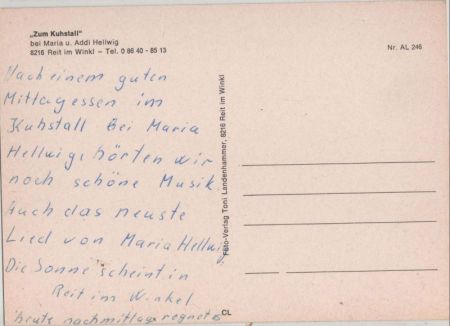 „Zum Kuhstall"
bei Maria u. Addi Hellwig
8216 Reit im Winkl – Tel. 0 86 40 - 85 13
Nr. AL 246
Nach einem guten
Mittagessen im
Kuhstall Bei Maria
Hellwigs hörten wir
noch schöne Musik.
Auch das neuste
Lied von Maria Hellwig
Die Sonne scheint in
Reit im Winkel
heute nachmittag regnet es
Foto-Verlag Toni Landenhammer, 8216 Reit im Winkl
CL